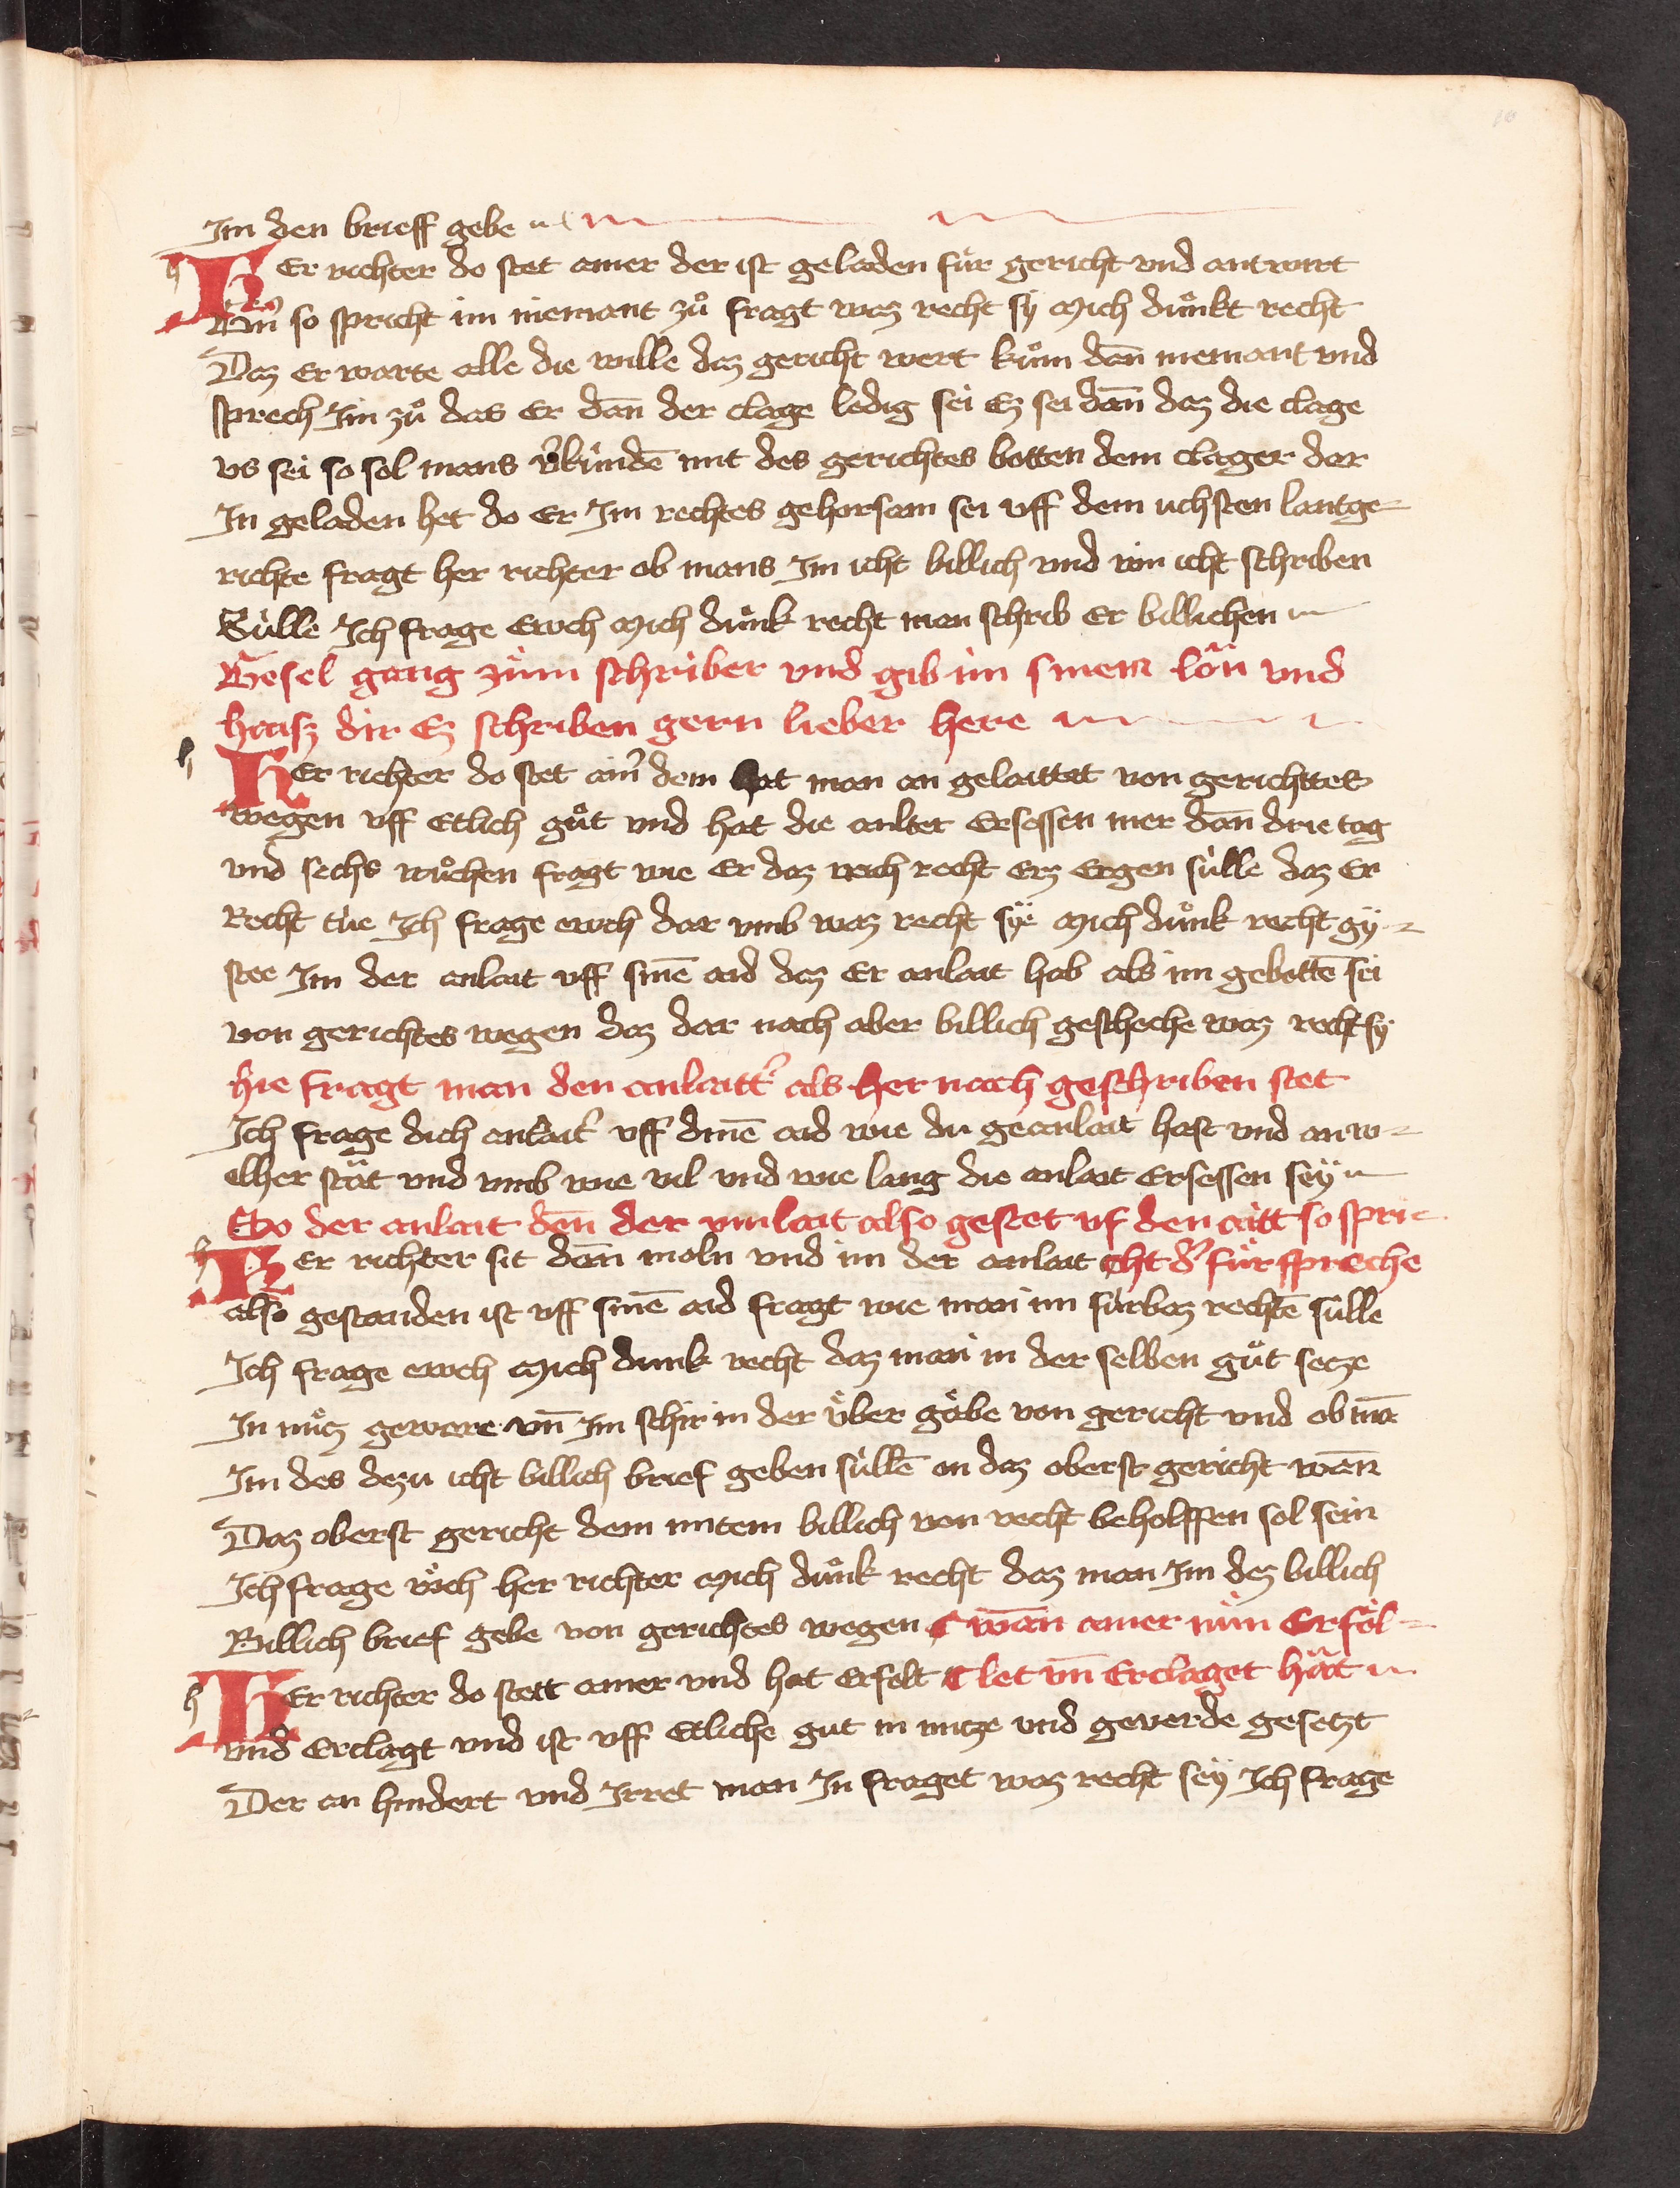 Im den brieff gebe
HEr richter do stet ainer der ist geladen für gericht vnd antwurt
so spricht im niemant zuͦ fragt waz recht sÿ Mich duͤnkt recht
Daz Er warte alle die wille daz gericht wert kuͦm dañ niemant vnd
sprech Im zuͦ das Er dañ der clage ledig sei Ez sei dañ daz die clage
vs sei so sol mans v̉kündē mit des gerichtes botten dem clager der
In geladen het do Er Im rechtes gehorsam sei vff dem nchsten lantge-
richte fragt her richter ob mans Im icht billich vnd icht schriben
Sülle Ich frage Ewch Mich duͤnk recht man schrib Er billichen
Gesel gang züm schriber vnd gib im sinem lon vnd
haisz dir Ez schriben gern lieber here
HEr richter do stet ain̉ dem hat man an gelaittet von gerichttes
wegen vff Etlich guͦt vnd hat die anlter Ersessen mer dañ drie tag
vnd sechs wuͦchen fragt wie Er daz nach recht Erz Ergen sülle daz Er
Recht tüe Ich frage ewch dar vmb waz recht sÿe Mich duͤnk recht gÿ-
stee Im der anlait vff sinē aid daz Er anlait hab als im gebottē sei
von gerichtes wegen daz dar nach aber billich gescheche waz recht sÿ
hie fragt man den anlaitt̉ als her nach geschriben stet
Ich frage dich anlait̉ vff dinē aid wie du geanlait hast vnd an w-
elher stät vnd vmb wie vil vnd wie lang die anlait Ersessen seÿ
So der anlait den der vmlait also gestet vf den aitt so spri-
HEr richter sit dañ moln vnd im der anlait cht d̉ fürspreche
also gestanden ist vff sinē aid fragt wie man im fürbaz rechtē sülle
Ich frage ewch Mich dunk recht daz man in der selben guͤt setze
In nuͤtz gewere vñ Im schir in der über gäbe von gericht vnd ob mā
Im des dezu icht billich brief geben süllē an daz oberst gericht wen
Daz oberst gericht dem mitem billich von recht beholffen sol sein
Ich frage üch her richter Mich duͤnk recht daz man Im dez billich
Billich brief gebe von gerichtes wegen ¶ wān ainer nün Erföl-
HEr richter do stett ainer vnd hat Erfolt ¶ let vñ Erclaget hät
vnd Erclagt vnd ist vff Etliche gut in nutze vnd geverde gesetzt
Der an hindert vnd Irret man In fraget waz recht seÿ Ich frage